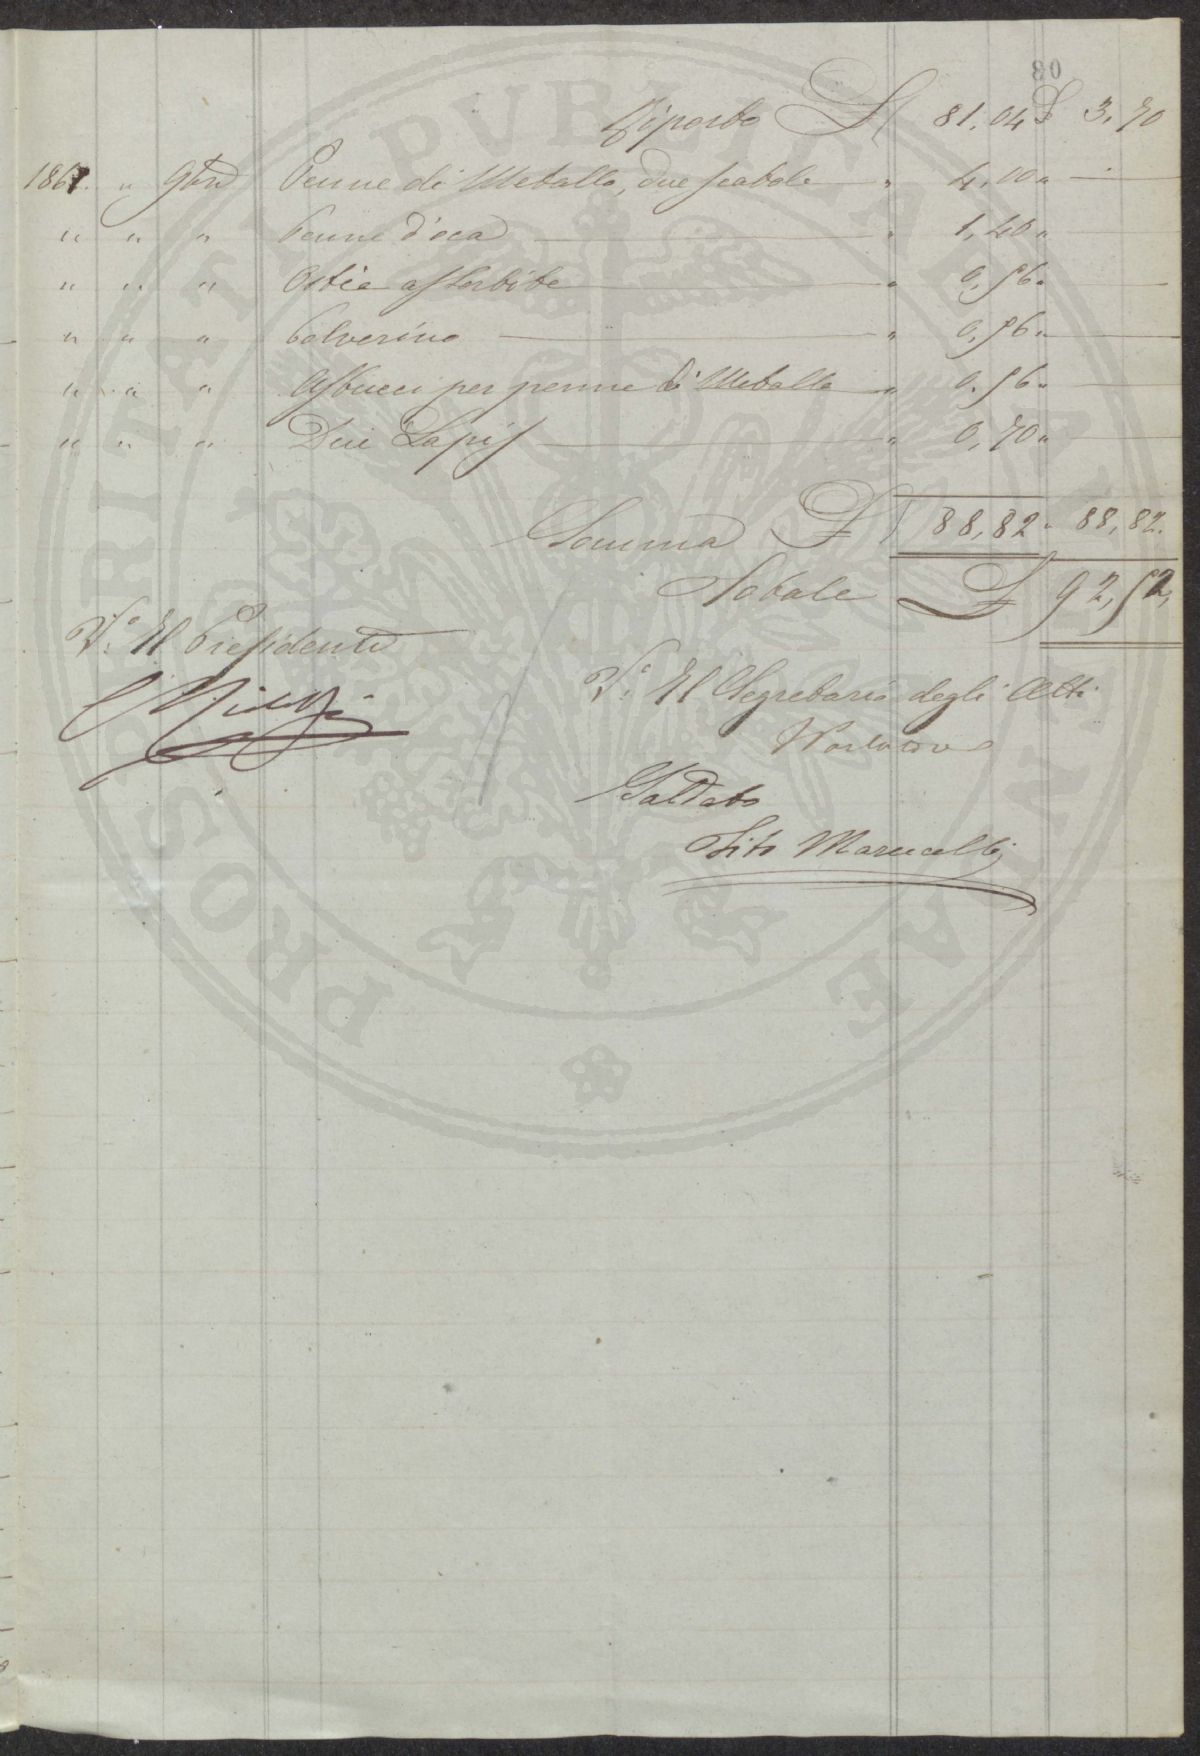 80
Riporto £ 81,04 £ 3,70
1861. " 9bre Penne di Metallo, due scatole " 4,00 "
" " " Penne d'oca " 1,40 "
" " " Ostie assortite " 0,56 "
" " " Polverino " 0,56 "
" " " Astucci per penne di Metallo " 0,56 "
" " " Due Lapis " 0,70 "
Somma £ 88,82 " 88,82.
Totale £ 92,52,
V.° Il Presidente
V.° Il Segretario degli Atti
Saldato
Tito Marucelli
PROSPERITATI PVBLICAE AVGENDAE